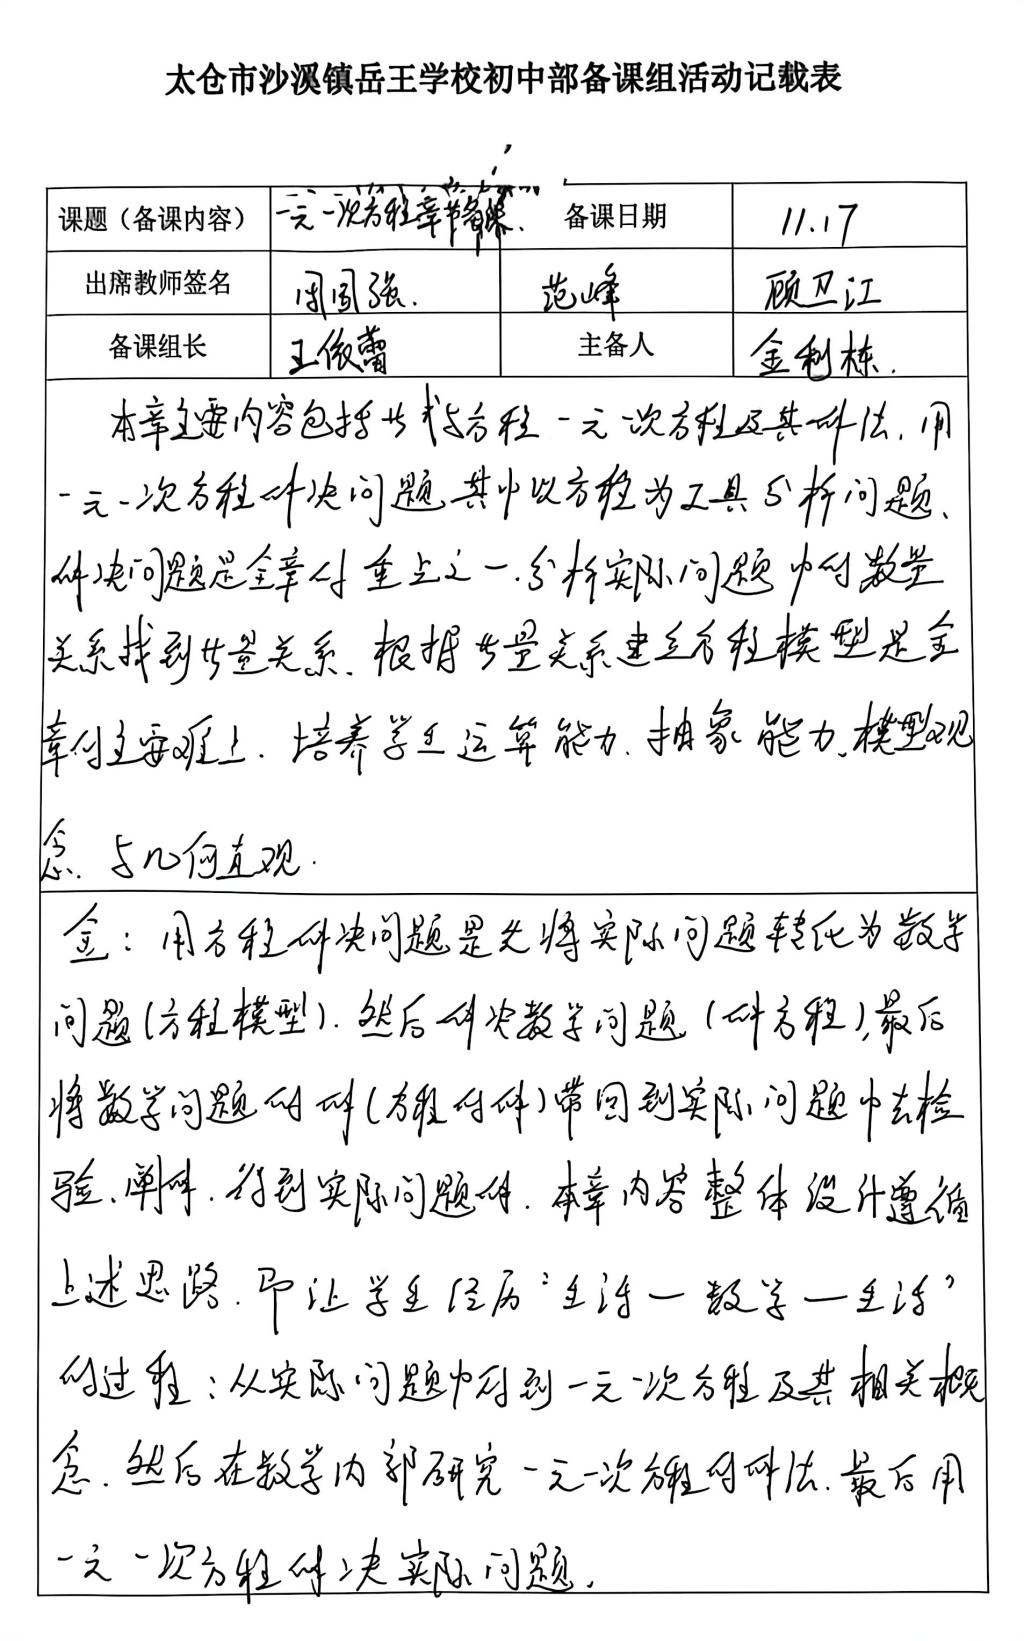 太仓市沙溪镇岳王学校初中部备课组活动记载表
课题（备课内容） 一元一次方程章节备课. 备课日期 11.17
出席教师签名 周国强. 范峰 顾卫江
备课组长 王依蕾 主备人 金利栋.
本章主要内容包括等式与方程 一元一次方程及其解法. 用
一元一次方程解决问题 其中以方程为工具分析问题、
解决问题是全章的重点之一. 分析实际问题中的数量
关系找到等量关系. 根据等量关系建立方程模型是全
章的主要难点. 培养学生运算能力、抽象能力、模型观
念、与几何直观.
金：用方程解决问题是先将实际问题转化为数学
问题(方程模型). 然后解决数学问题(解方程), 最后
将数学问题的解(方程的解)带回到实际问题中去检
验、阐释. 得到实际问题解. 本章内容整体设计遵循
上述思路. 即让学生经历“生活—数学—生活”
的过程：从实际问题中得到一元一次方程及其相关概
念. 然后在数学内部研究一元一次方程的解法. 最后用
一元一次方程解决实际问题.